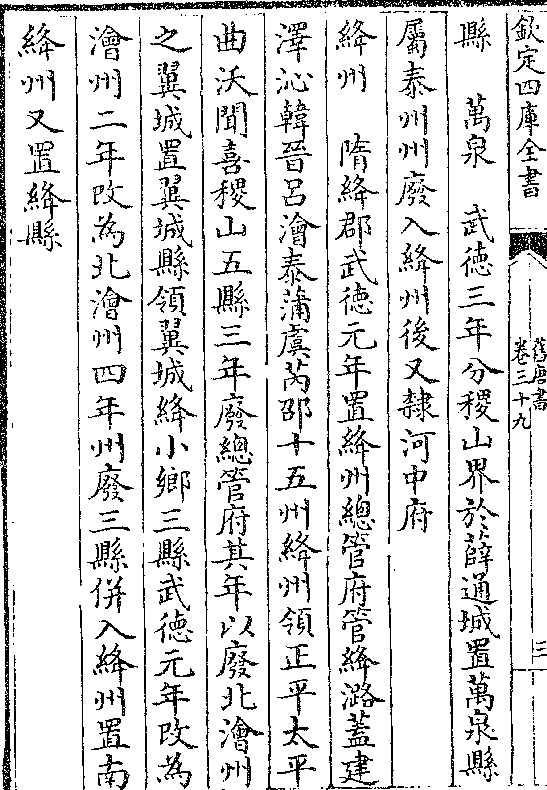 欽定四庫全書
舊唐書
卷三十九
三
縣　萬泉　武德三年分稷山界於薛通城置萬泉縣
屬泰州州廢入絳州後又隸河中府
絳州　隋絳郡武德元年置絳州總管府管絳潞蓋建
澤沁韓晉吕澮泰蒲虞芮邵十五州絳州領正平太平
曲沃聞喜稷山五縣三年廢總管府其年以廢北澮州
之翼城置翼城縣領翼城絳小鄉三縣武德元年改為
澮州二年改為北澮州四年州廢三縣併入絳州置南
絳州又置絳縣